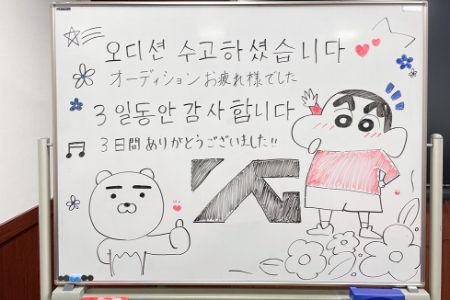 오디션 수고하셨습니다
オーディションお疲れ様でした
3일동안 감사합니다
3日間ありがとうございました!!
YG